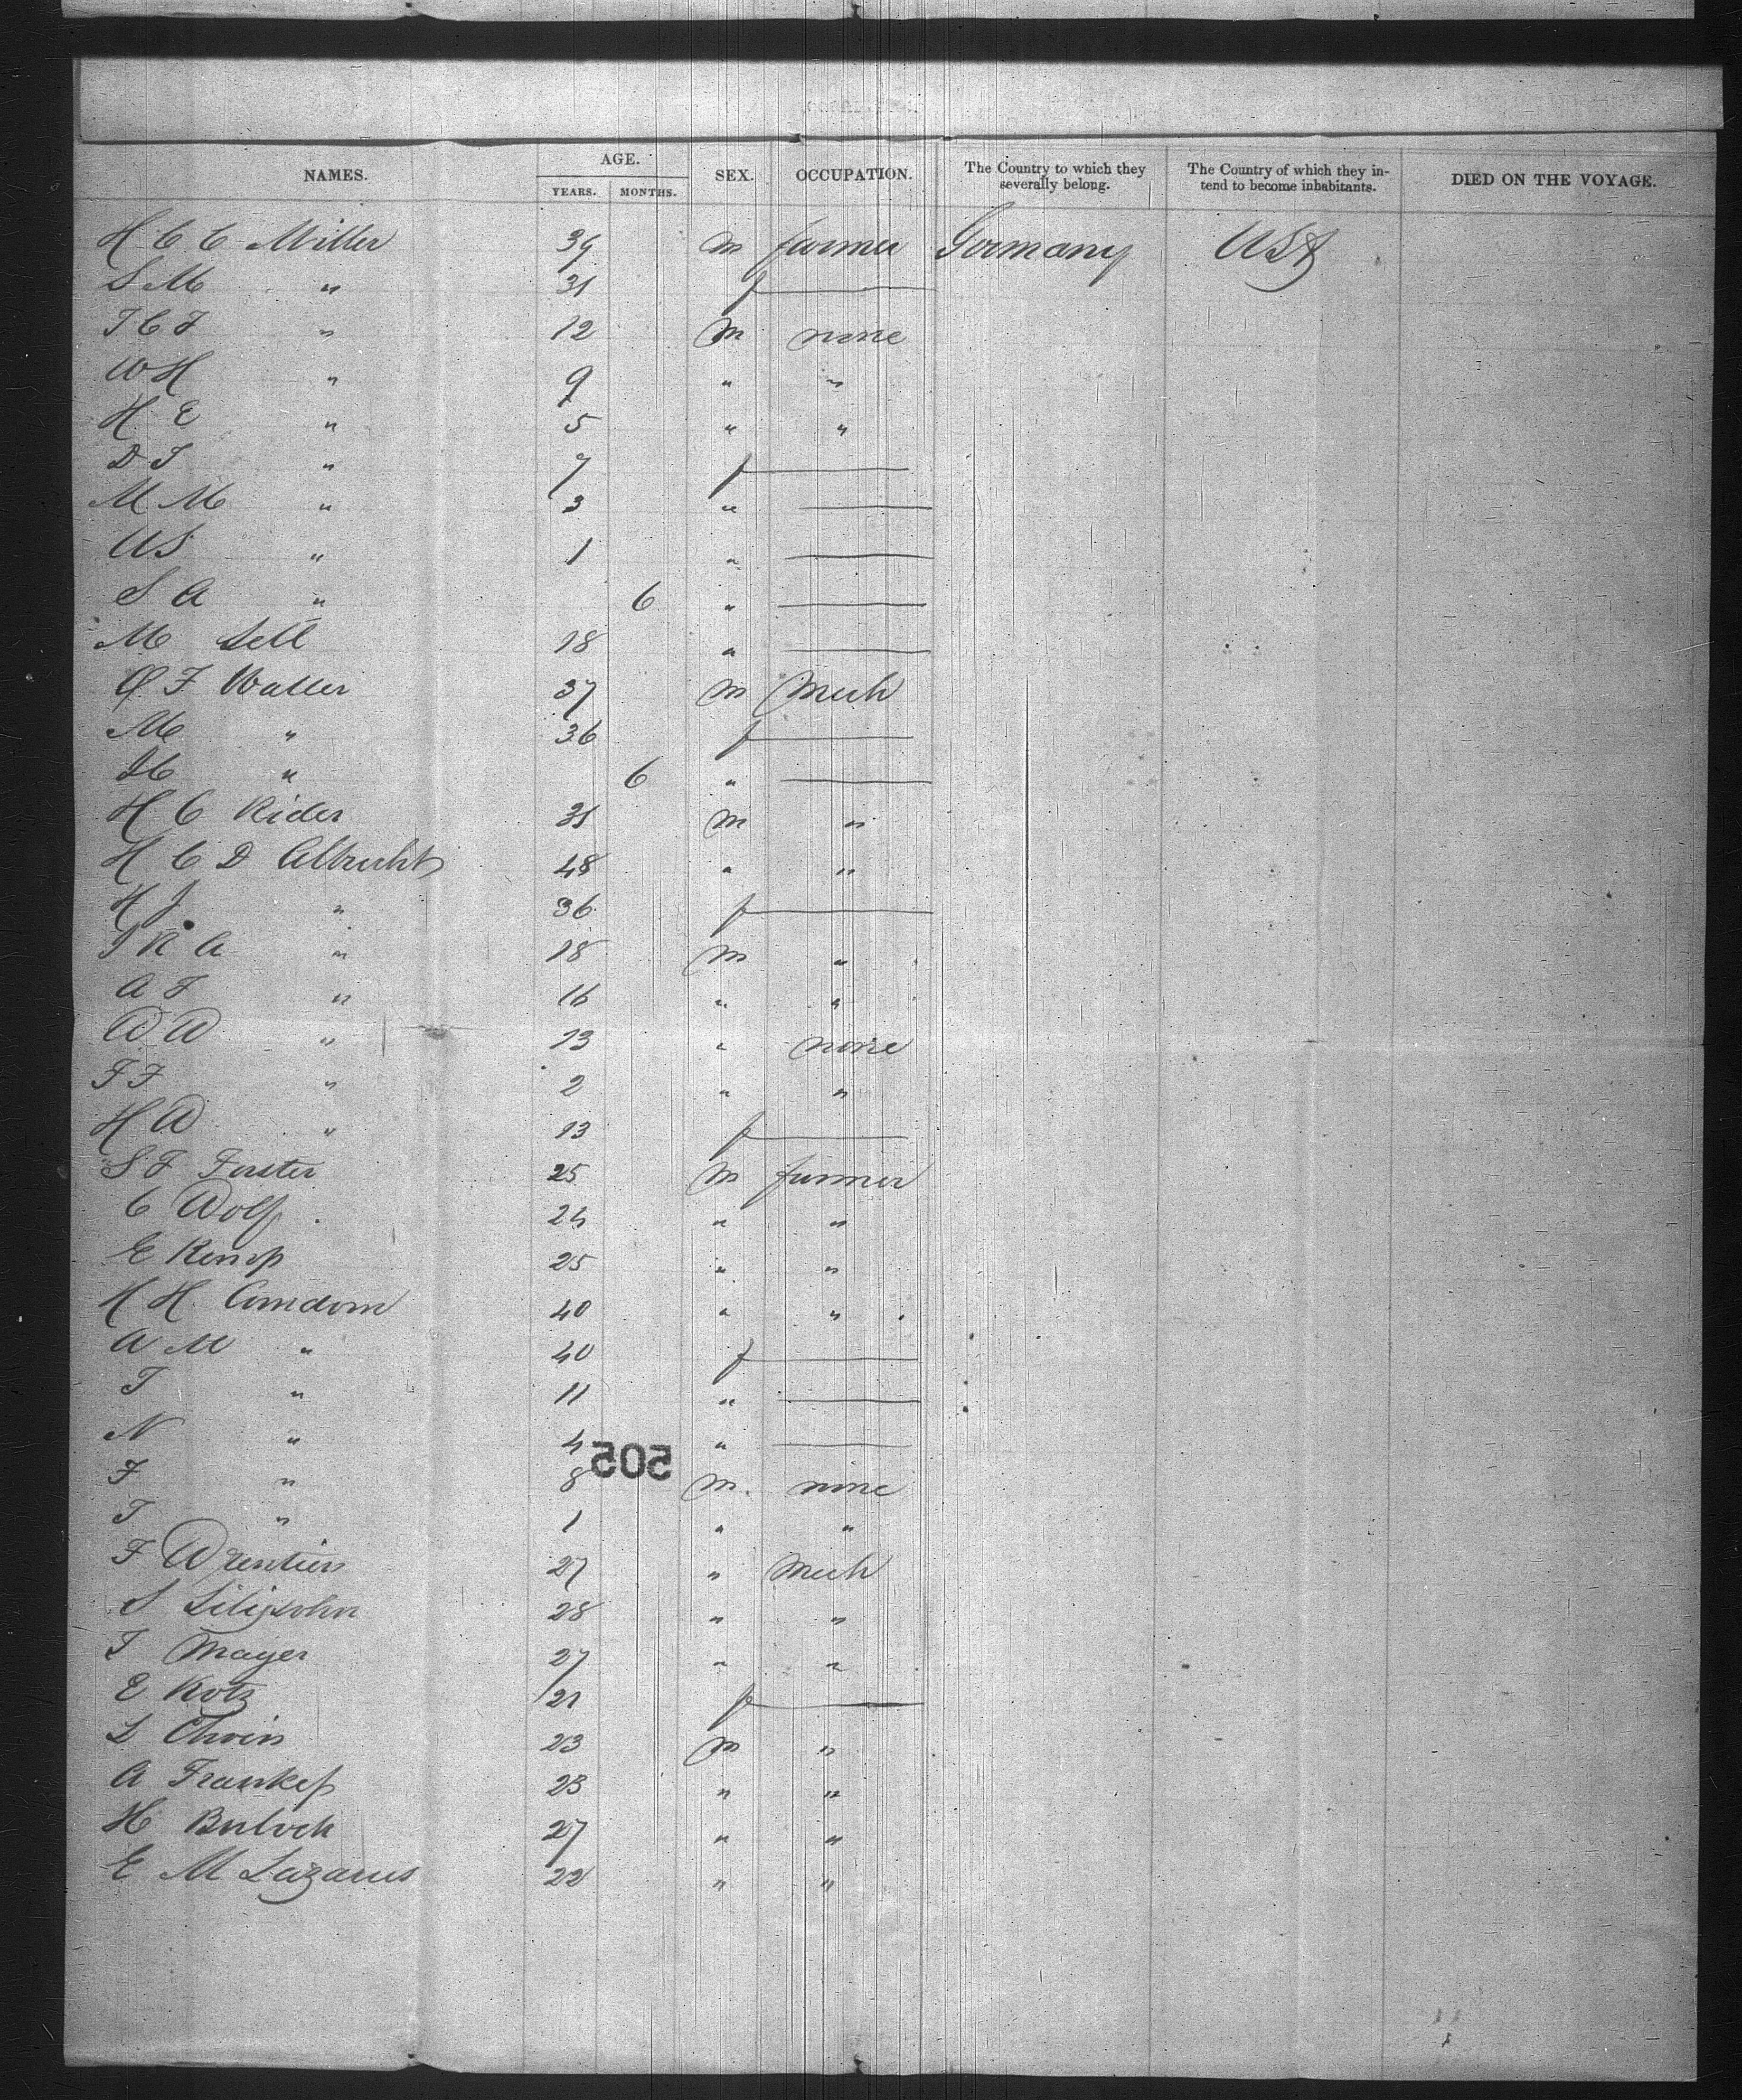 NAMES. AGE. YEARS. MONTHS. SEX. OCCUPATION. The Country to which they severally belong. The Country of which they intend to become inhabitants. DIED ON THE VOYAGE.
H C C Miller 39 m farmer Germany USA
S M " 31 f —
T C F " 12 m none
W H " 9 " "
H E " 5 " "
D T " 7 f —
M M " 3 " —
W S " 1 " —
S A " 6 " —
M Sell 18 " —
F Waller 37 m Mech
M " 36 f —
" 6 " —
H C Rider 31 m "
H C D Albrecht 48 " "
H J " 36 f —
J R A " 18 m "
A F " 16 " "
W W " 13 " none
F F " 2 " "
H W " 13 f —
S F Forster 25 m farmer
C Wolf 24 " "
E Kemp 25 " "
H H Amdom 40 " "
A M " 40 f —
T " 11 " —
N " 4 " —
505
F " 8 m none
T " 1 " "
F 27 " Mech
S Lilijsohn 28 " "
T Mayer 27 " "
E Kotz 21 f —
L 23 m "
A Frankel 23 " "
H Buloch 27 " "
E M Lazarus 22 " "